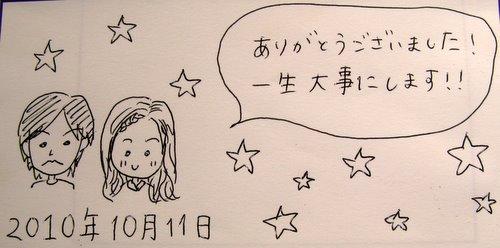 ありがとうございました!
一生大事にします!!
2010年10月11日